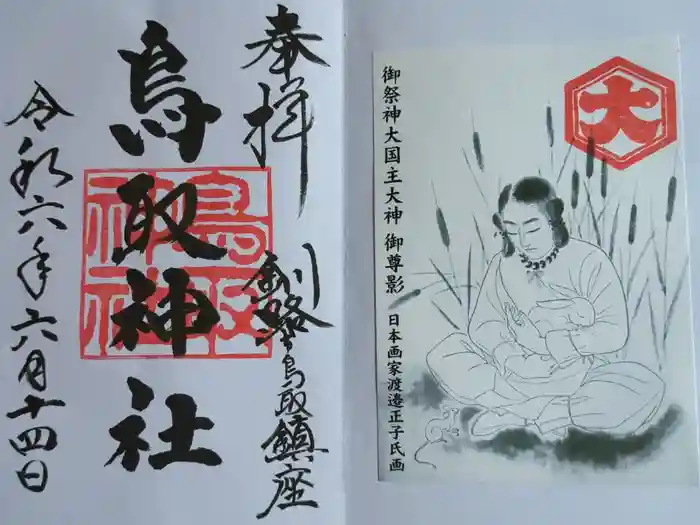 奉拝
釧路鳥取鎮座
鳥取神社
鳥取神社
令和六年六月十四日
大
御祭神大国主大神 御尊影
日本画家渡邉正子氏画